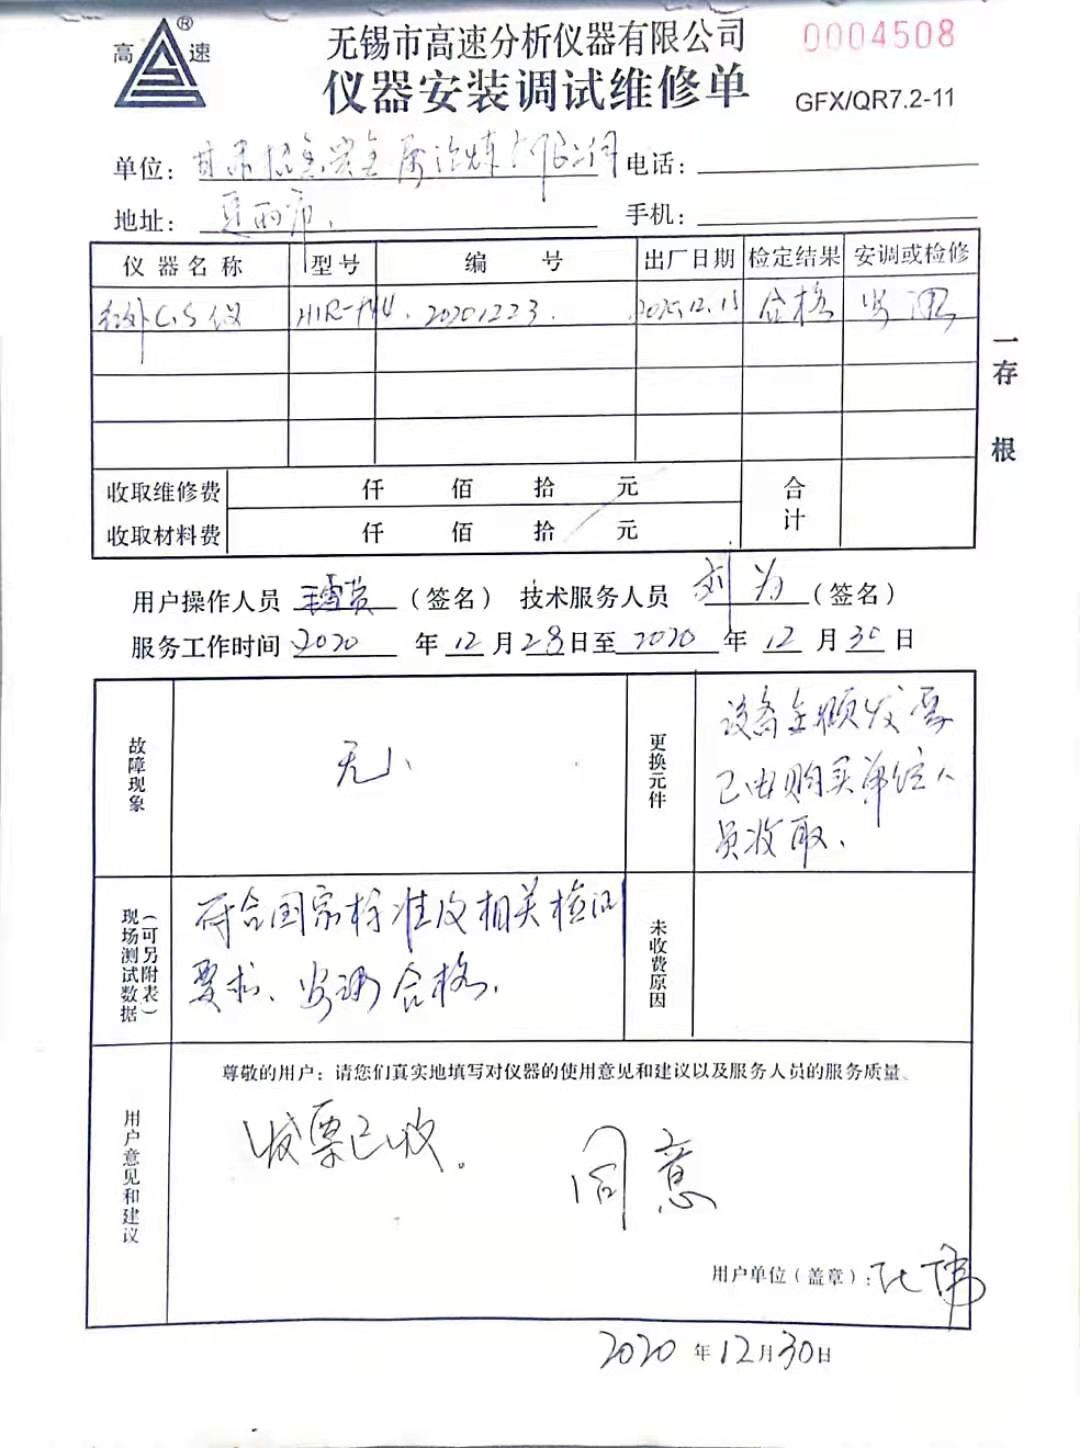 高 ® 速
无锡市高速分析仪器有限公司
0004508
仪器安装调试维修单
GFX/QR7.2-11
单位: 甘肃 金属冶炼有限公司 电话:
地址: 手机:
仪器名称 型号 编号 出厂日期 检定结果 安调或检修
红外C.S仪 HIR-944. 20201223. 2020.12.15 合格 安调
一存根
收取维修费 仟 佰 拾 元 合计
收取材料费 仟 佰 拾 元
用户操作人员 (签名) 技术服务人员 刘为 (签名)
服务工作时间 2020 年 12 月 28 日至 2020 年 12 月 30 日
故障现象
无、
更换元件
设备全额发票
已由购买单位人
员收取、
现场测试数据
(可另附表)
符合国家标准及相关检测
要求、安调合格.
未收费原因
用户意见和建议
尊敬的用户: 请您们真实地填写对仪器的使用意见和建议以及服务人员的服务质量、
发票已收。
同意
用户单位(盖章):
2020 年 12 月 30 日